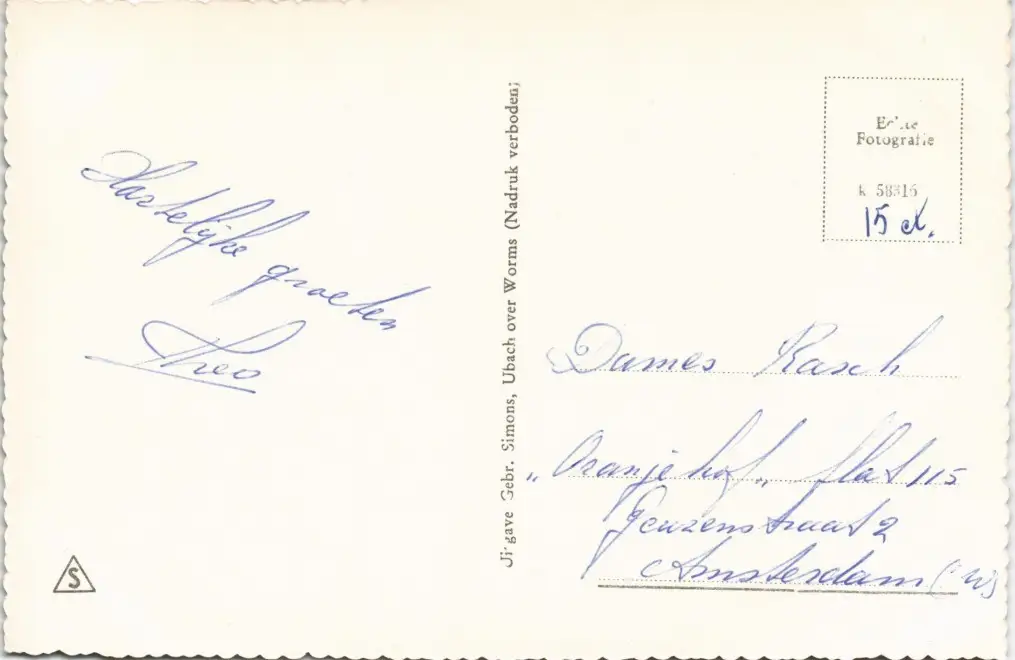 Hartelijke groeten
Theo
S
Ji gave Gebr. Simons, Ubach over Worms (Nadruk verboden;
Echte
Fotografie
k 58316
15 ct.
Dames Rasch
„Oranjehof„ flat 115
Geuzenstraat 2
Amsterdam (W)